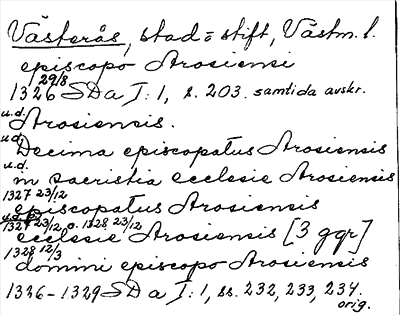 Västerås, stad o stift, Västm. l.
episcopo Arosiensi
29/8
1326 SDa I: 1, s. 203. samtida avskr.
u.d. Arosiensis.
u.d. Decima episcopatus Arosiensis
u.d. in sacristia ecclesie Arosiensis
1327 23/12 episcopatus Arosiensis
1327 23/12 o. 1328 23/12
ecclesie Arosiensis [3 ggr]
1328 12/3 domini episcopo Arosiensis
1326-1329 SD a I: 1, ss. 232, 233, 234.
orig.